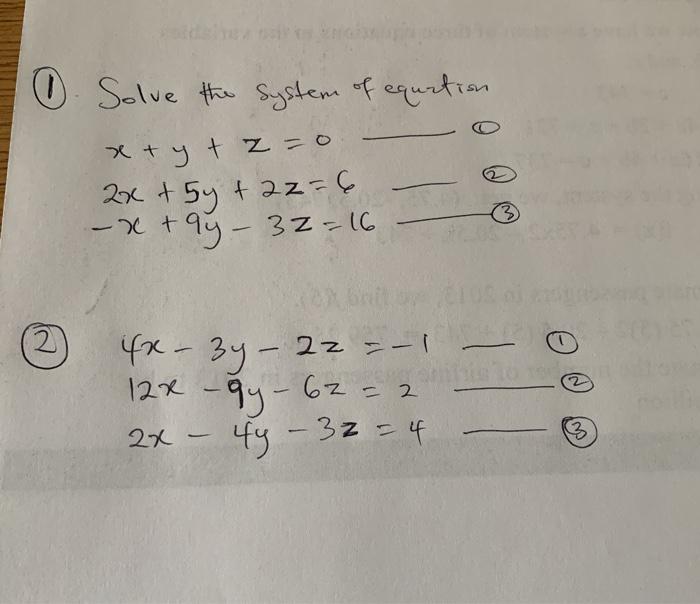 ① Solve the system of equation
x + y + z = 0 —— ①
2x + 5y + 2z = 6 —— ②
-x + 9y - 3z = 16 —— ③
② 4x - 3y - 2z = -1 —— ①
12x - 9y - 6z = 2 —— ②
2x - 4y - 3z = 4 —— ③